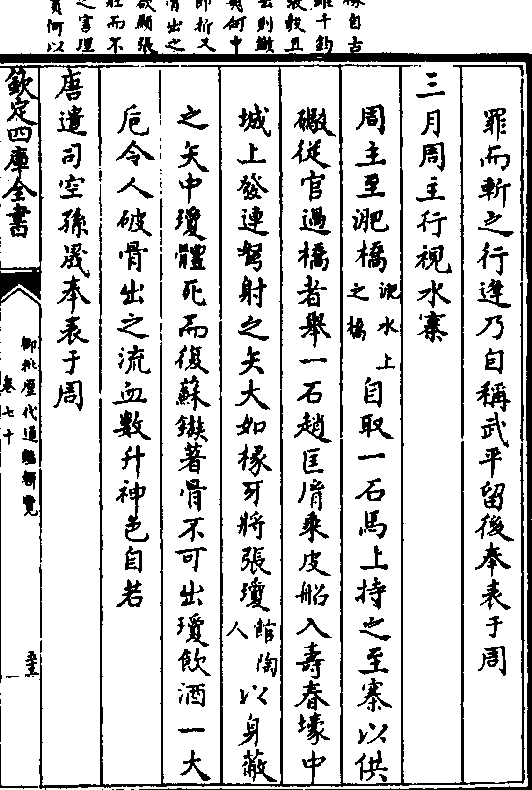 罪而斬之行逢乃自稱武平留後奉表于周
三月周主行視水寨
周主至淝橋淝水上之橋自取一石馬上持之至寨以供
礮從官過橋者舉一石趙匡胤乘皮船入壽春壕中
城上發連弩射之矢大如椽牙將張瓊館陶人以身蔽
之矢中瓊體死而復蘇鏃著骨不可出瓊飲酒一大
卮令人破骨出之流血數升神色自若
唐遣司空孫晟奉表于周
欽定四庫全書
御批歷代通鑑輯覽
卷七十
椽自古
雖千鈞
張彀且
去則鏃
何中
即折又
骨出之
欲顯張
壯而不
之害理
實何以